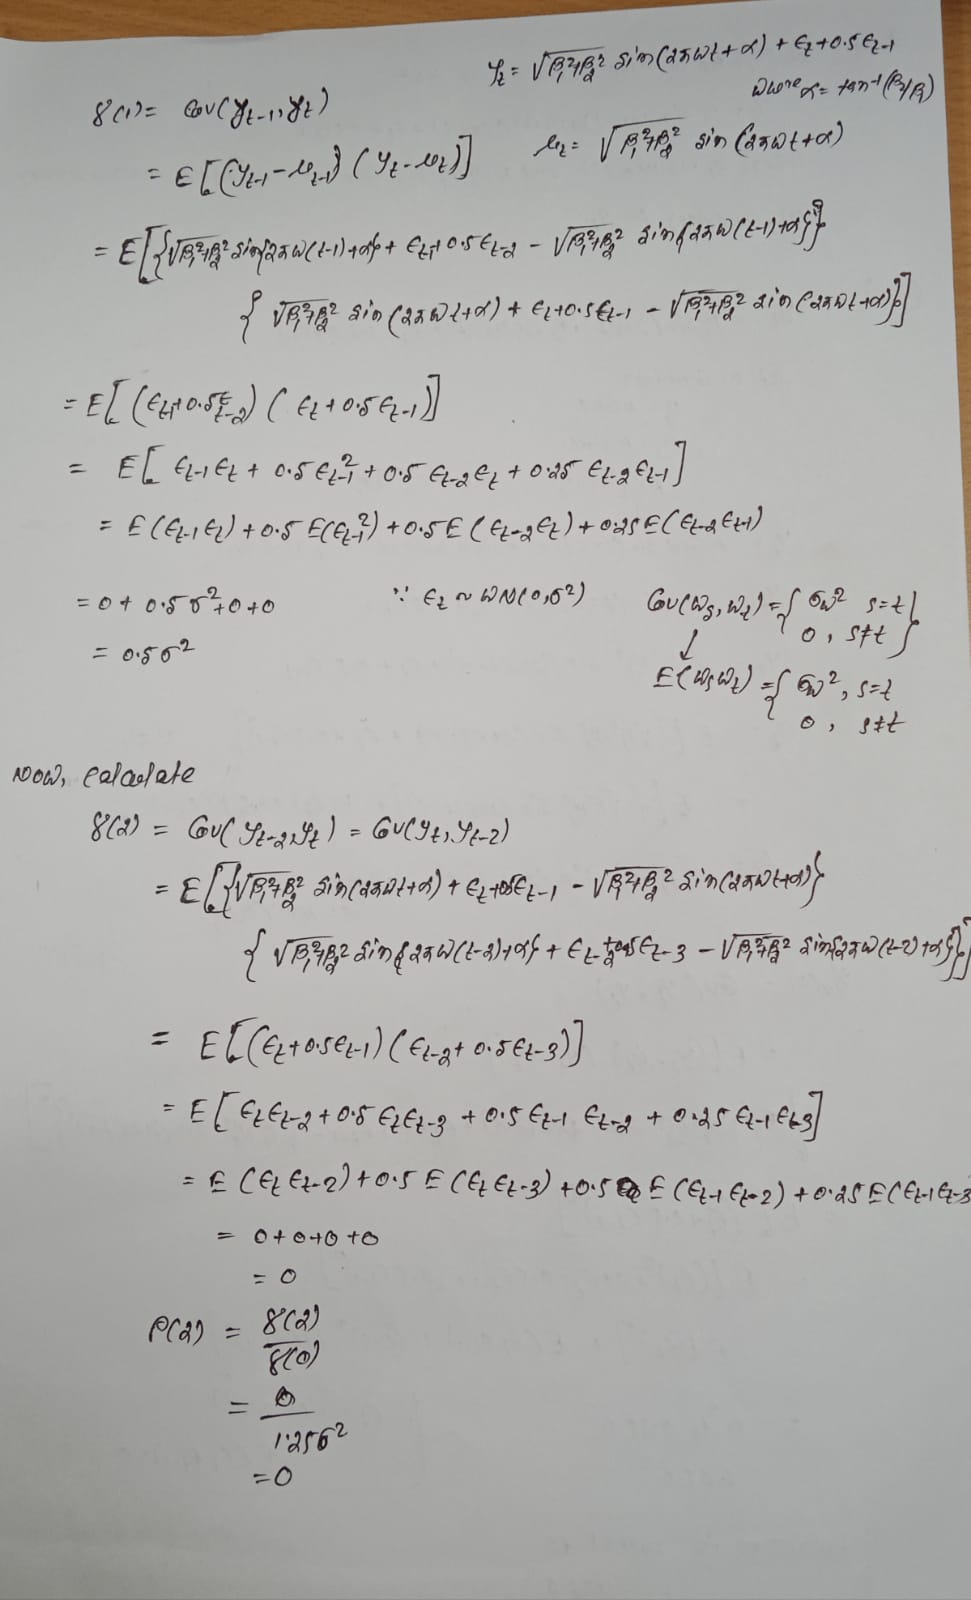 y_t = √(β₁²+β₂²) sin(2πωt+α) + ε_t+0.5ε_{t-1}
where α = tan⁻¹(β₂/β₁)
γ(1) = Cov(y_{t-1}, y_t)
= E[(y_{t-1} - μ_{t-1}) (y_t - μ_t)]
μ_t = √(β₁²+β₂²) sin(2πωt+α)
= E[{√(β₁²+β₂²) sin{2πω(t-1)+α} + ε_{t-1}+0.5ε_{t-2} - √(β₁²+β₂²) sin{2πω(t-1)+α}}
{√(β₁²+β₂²) sin(2πωt+α) + ε_t+0.5ε_{t-1} - √(β₁²+β₂²) sin(2πωt+α)}]
= E[(ε_{t-1}+0.5ε_{t-2}) (ε_t+0.5ε_{t-1})]
= E[ε_{t-1}ε_t + 0.5ε_{t-1}² + 0.5ε_{t-2}ε_t + 0.25ε_{t-2}ε_{t-1}]
= E(ε_{t-1}ε_t) + 0.5E(ε_{t-1}²) + 0.5E(ε_{t-2}ε_t) + 0.25E(ε_{t-2}ε_{t-1})
= 0 + 0.5σ²+0+0
∵ ε_t ~ WN(0,σ²)
Cov(w_s, w_t) = { σw² s=t
0, s≠t }
= 0.5σ²
↓
E(w_s w_t) = { σw², s=t
0, s≠t
Now, calculate
γ(2) = Cov(y_{t-2}, y_t) = Cov(y_t, y_{t-2})
= E[{√(β₁²+β₂²) sin(2πωt+α) + ε_t+0.5ε_{t-1} - √(β₁²+β₂²) sin(2πωt+α)}
{√(β₁²+β₂²) sin{2πω(t-2)+α} + ε_{t-2}+0.5ε_{t-3} - √(β₁²+β₂²) sin{2πω(t-2)+α}}]
= E[(ε_t+0.5ε_{t-1}) (ε_{t-2}+0.5ε_{t-3})]
= E[ε_tε_{t-2}+0.5ε_tε_{t-3} + 0.5ε_{t-1}ε_{t-2} + 0.25ε_{t-1}ε_{t-3}]
= E(ε_tε_{t-2}) + 0.5E(ε_tε_{t-3}) + 0.5E(ε_{t-1}ε_{t-2}) + 0.25E(ε_{t-1}ε_{t-3}
= 0+0+0+0
= 0
ρ(2) = γ(2)/γ(0)
= 0/1.25σ²
= 0